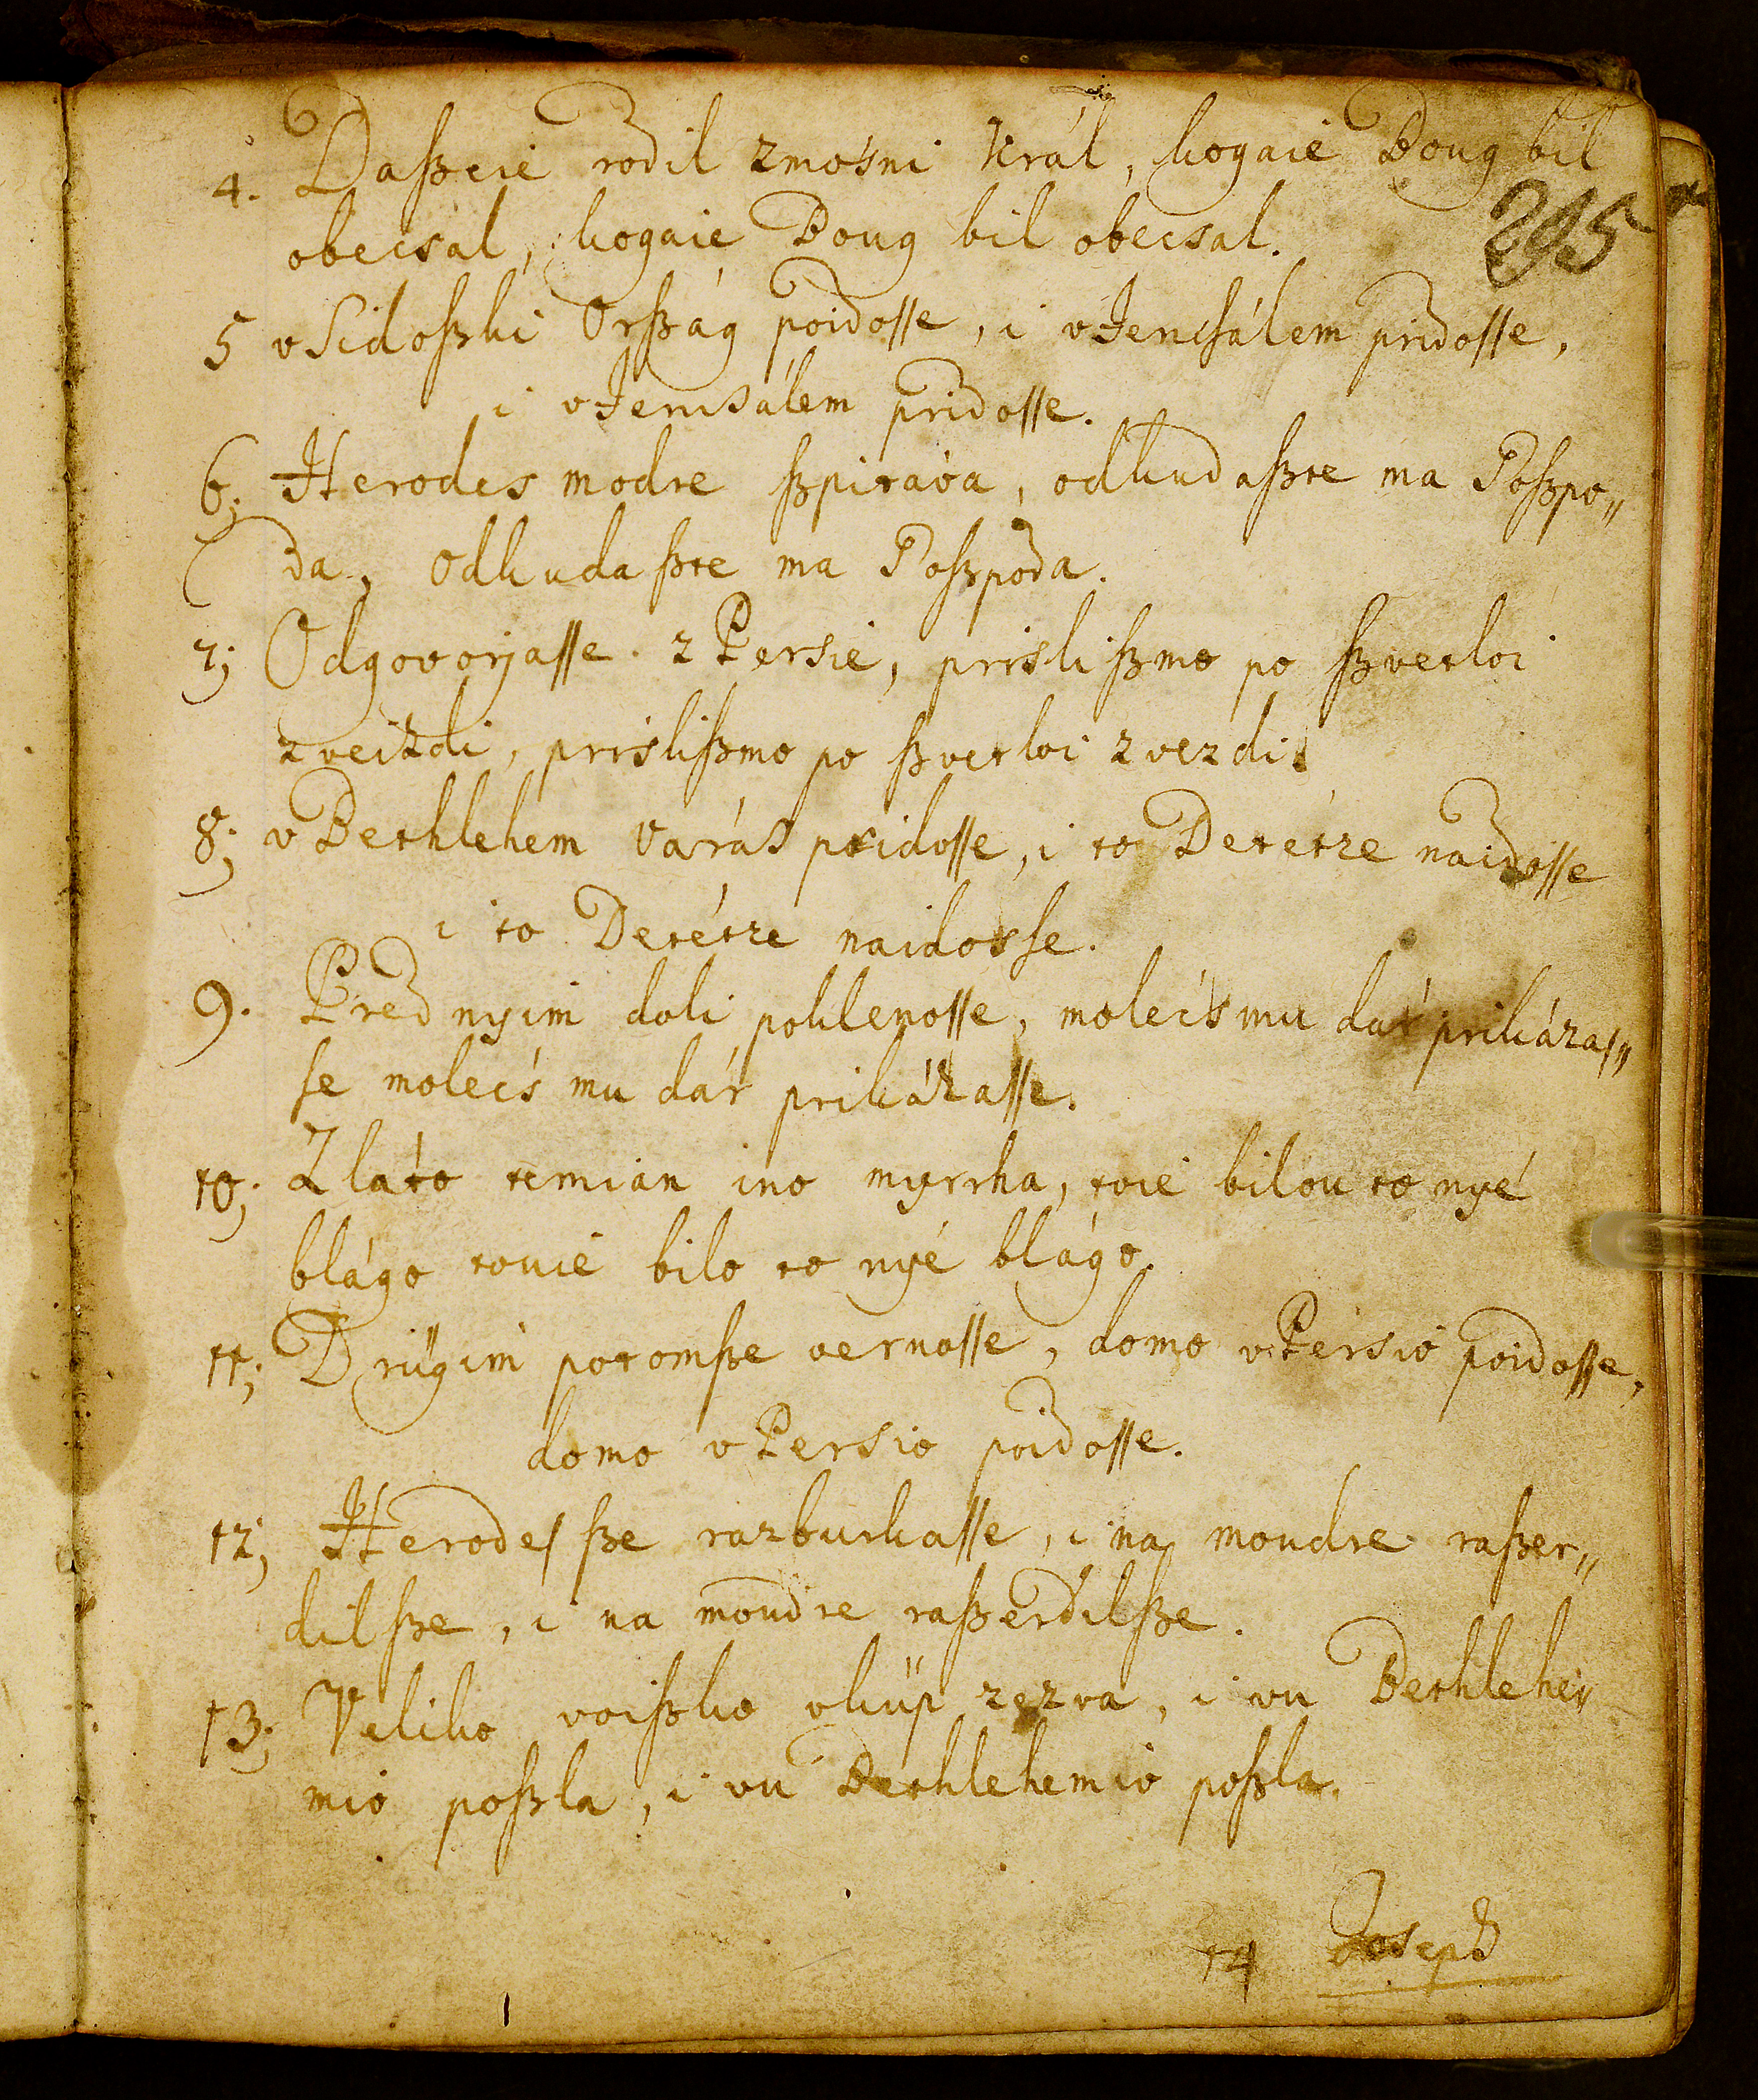 4. Daſzeie rodil zmosni Král, kogaie Boug bil
295
obecsal, kogaie Boug bil obecsal.
5 v Sidoſzki Orſzág poidoſſe, i v Jerusálem pridoſſe,
i v Jerusálem pridoſſe.
6; Herodes modre ſzpitáva, odkudaſzte ma Goſzpo„
da, odkuda ſzte ma Goſzpoda.
7; Odgovorjaſſe. z Persie, prisli ſzmo po ſzvetloi
zveizdi, prisliſzmo po ſzvetloi zvezdi.
8; v Bethlehem Varás pridoſſe, i to Detetze naidoſſe
i to Detétze naidosſe.
9. Pred nyim doli poklenoſſe, molecś mu dár prikázaſ„
ſe molecś mu dár prikázaſſe.
10; Zlato temian ino myrrha, toie bilou to nyé
blágo touie bilo to nyé blágo.
11; Drügim potomſze vernoſſe, domo v Persio poidoſſe,
domo v Persio poidoſſe.
12; Herodeſ ſze razburkaſſe, i na moudre raſzer„
dil ſze, i na moudre raſzerdilſze.
13; Veliko voiſzko vküp zezva, i vu Bethlehe„
mio poſzla, i vu Bethlehemio poſzla.
14 Joseph